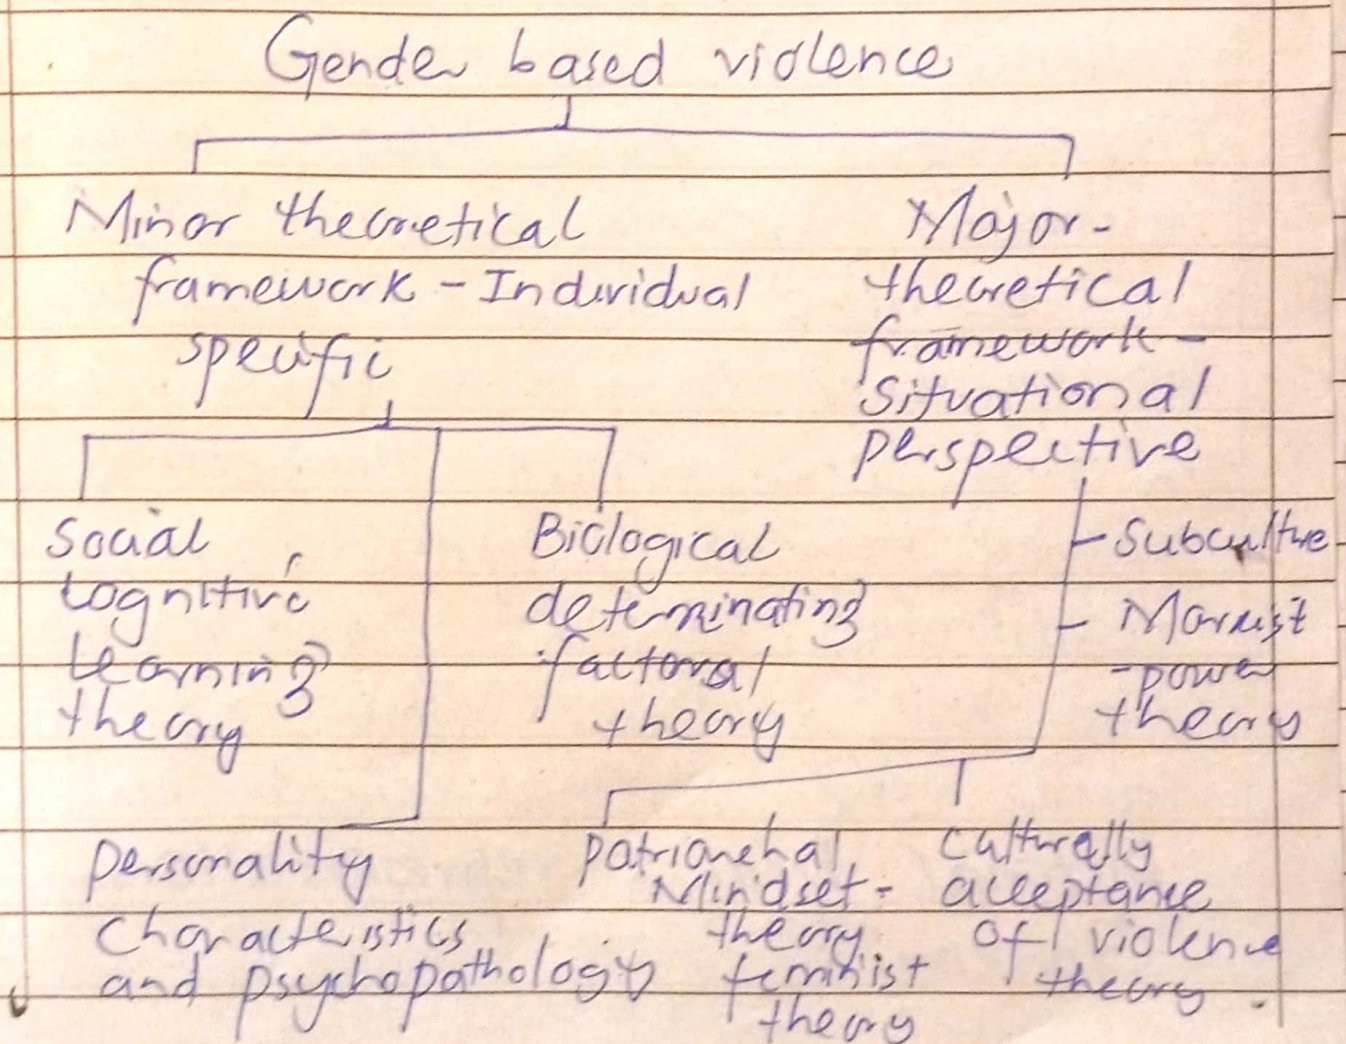 Gender based violence
Minor theoretical
framework - Individual
specific
Major -
theoretical
framework -
Situational
perspective
Social
cognitive
learning
theory
Biological
determinating
factoral
theory
- Subculture
- Marxist
- power
theory
personality
characteristics
and psychopathology
patriarchal
Mindset -
theory
feminist
theory
culturally
acceptance
of violence
theory